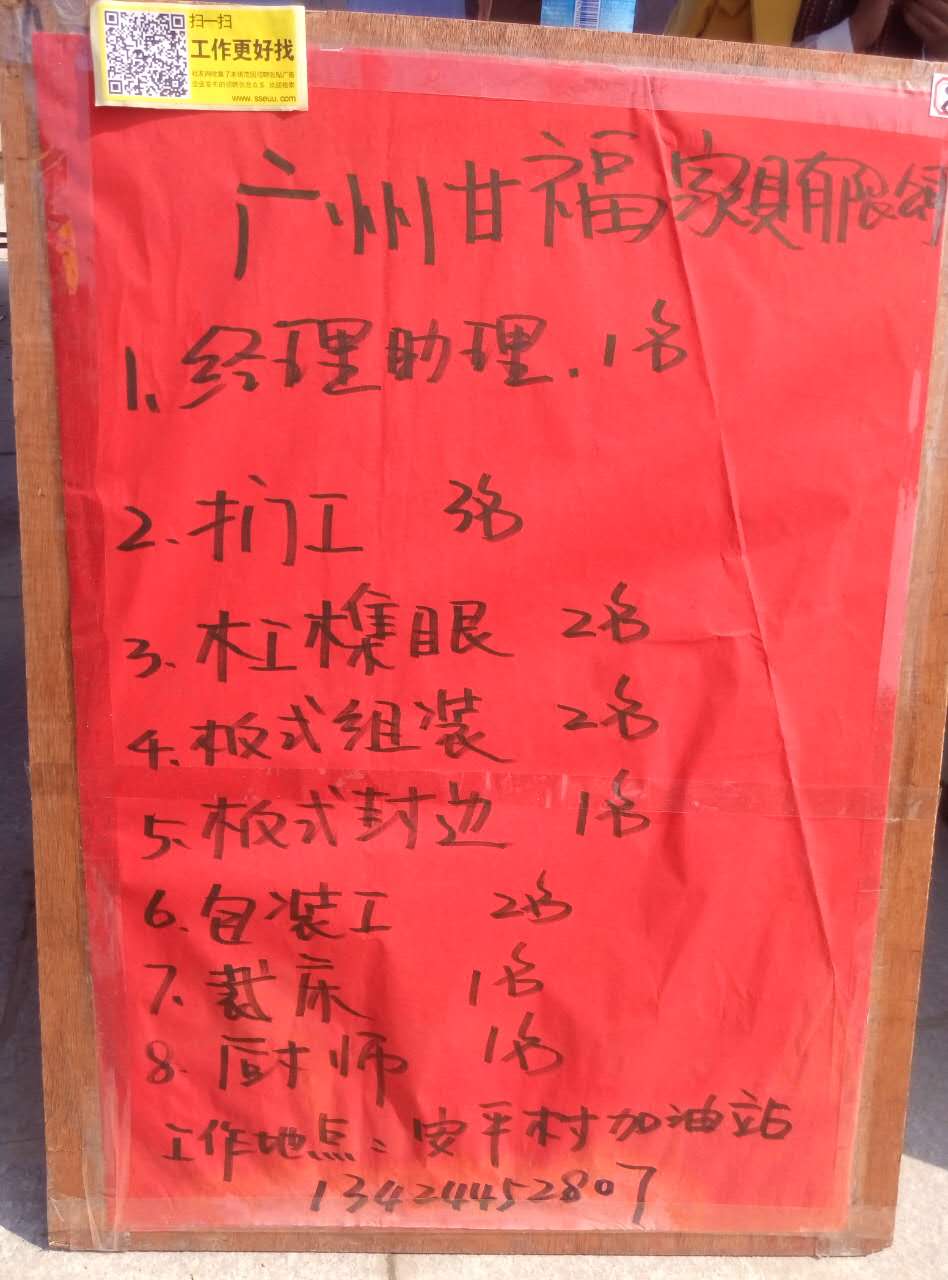 扫一扫
工作更好找
www.sseuu.com
广州甘福家具有限公司
1、经理助理.1名
2、扪工 3名
3、木工榫眼 2名
4、板式组装 2名
5、板式封边 1名
6、包装工 2名
7、裁床 1名
8、厨师 1名
工作地点：安平村加油站
13424452807